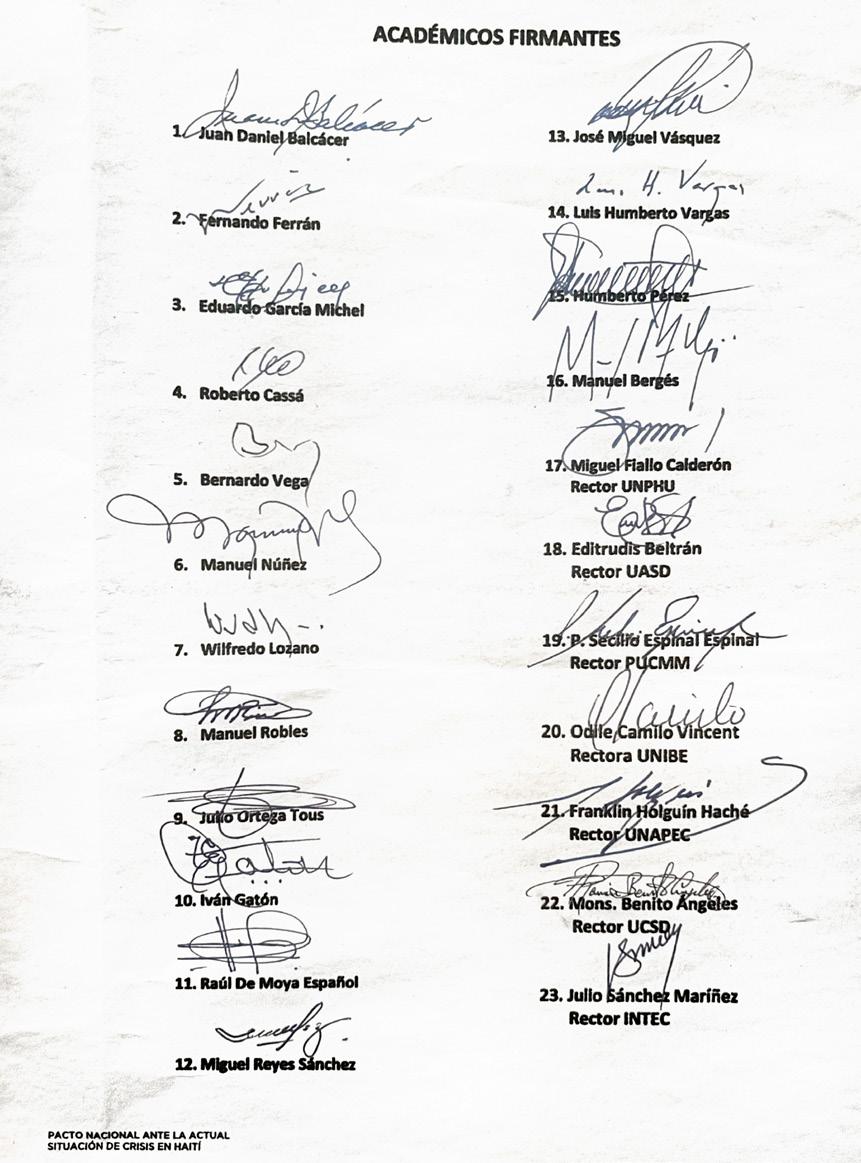 ACADÉMICOS FIRMANTES
1. Juan Daniel Balcácer
2. Fernando Ferrán
3. Eduardo García Michel
4. Roberto Cassá
5. Bernardo Vega
6. Manuel Núñez
7. Wilfredo Lozano
8. Manuel Robles
9. Julio Ortega Tous
10. Iván Gatón
11. Raúl De Moya Español
12. Miguel Reyes Sánchez
13. José Miguel Vásquez
Luis H. Vargas
14. Luis Humberto Vargas
15. Humberto Pérez
16. Manuel Bergés
17. Miguel Fiallo Calderón
Rector UNPHU
18. Editrudis Beltrán
Rector UASD
19. P. Secilio Espinal Espinal
Rector PUCMM
20. Odile Camilo Vincent
Rectora UNIBE
21. Franklin Holguín Haché
Rector UNAPEC
22. Mons. Benito Ángeles
Rector UCSD
23. Julio Sánchez Maríñez
Rector INTEC
PACTO NACIONAL ANTE LA ACTUAL
SITUACIÓN DE CRISIS EN HAITÍ